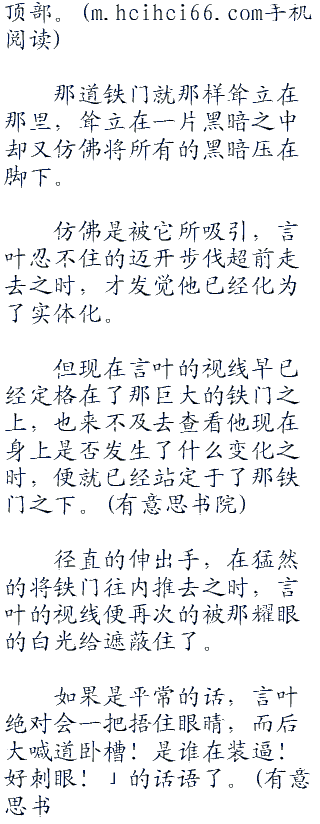 顶部。(m.hcihci66.com手机
阅读)
那道铁门就那样耸立在
那里，耸立在一片黑暗之中
却又仿佛将所有的黑暗压在
脚下。
仿佛是被它所吸引，言
叶忍不住的迈开步伐超前走
去之时，才发觉他已经化为
了实体化。
但现在言叶的视线早已
经定格在了那巨大的铁门之
上，也来不及去查看他现在
身上是否发生了什么变化之
时，便就已经站定于了那铁
门之下。(有意思书院)
径直的伸出手，在猛然
的将铁门往内推去之时，言
叶的视线便再次的被那耀眼
的白光给遮蔽住了。
如果是平常的话，言叶
绝对会一把捂住眼睛，而后
大喊道卧槽！是谁在装逼！
好刺眼！」的话语了。(有意
思书